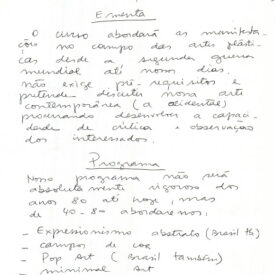 Ementa
O curso abordará as manifesta-
ções no campo das artes plásti-
cas desde a segunda guerra
mundial até nossos dias.
não exige pré-requisitos e
pretende discutir nova arte
contemporânea (a ocidental)
procurando desenvolver a capaci-
dade de crítica e observação
dos interessados.
Programa
Nosso programa não será
absolutamente rigoroso dos
anos 80 até hoje, mas
de 40-80 abordaremos:
- Expressionismo abstrato (Brasil tb)
- campos de cor
- Pop Art (Brasil também)
- minimal Art